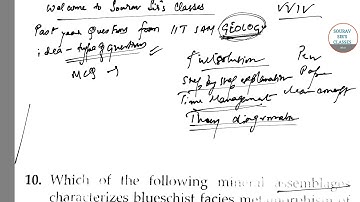 Welcome to Sourav Sir's Classes
Past year Questions from IIT JAM GEOLOGY
idea - type of questions
MCQ →
Full solution
Pen
Step by step explanation
Time Management clear concept
Theory diagrams
SOURAV
SIR'S
CLASSES
10. Which of the following mineral assemblages
characterizes blueschist facies metamorphism of